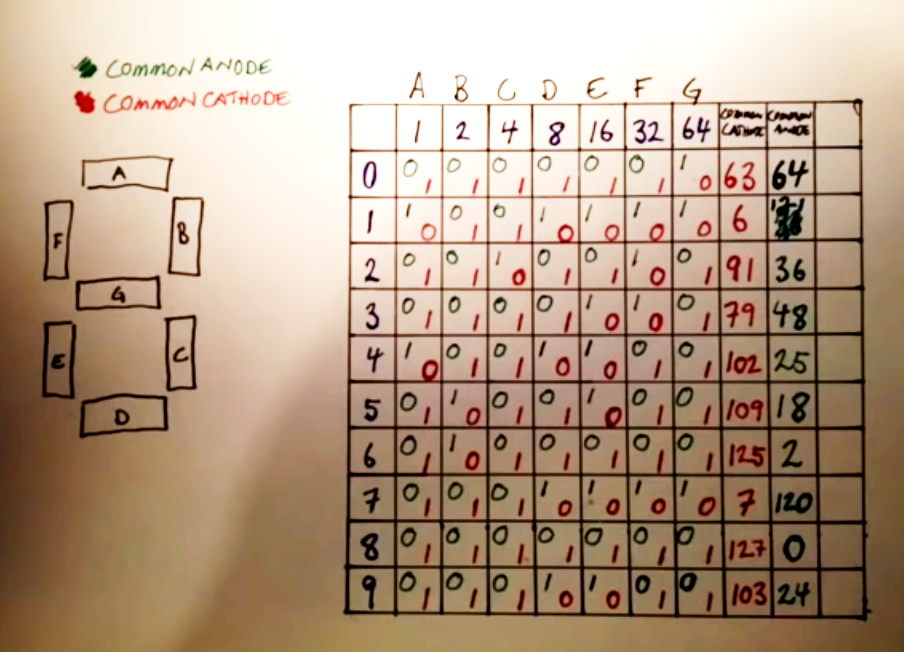 COMMON ANODE
COMMON CATHODE
A
F
B
G
E
C
D
A B C D E F G
1 2 4 8 16 32 64 COMMON CATHODE COMMON ANODE
0 0 1 0 1 0 1 0 1 0 1 0 1 1 0 63 64
1 1 0 0 1 0 1 1 0 1 0 1 0 1 0 6
2 0 1 0 1 1 0 0 1 0 1 1 0 0 1 91 36
3 0 1 0 1 0 1 0 1 1 0 1 0 0 1 79 48
4 1 0 0 1 0 1 1 0 1 0 0 1 0 1 102 25
5 0 1 1 0 0 1 0 1 1 0 0 1 0 1 109 18
6 0 1 1 0 0 1 0 1 0 1 0 1 0 1 125 2
7 0 1 0 1 0 1 1 0 1 0 1 0 1 0 7 120
8 0 1 0 1 0 1 0 1 0 1 0 1 0 1 127 0
9 0 1 0 1 0 1 1 0 1 0 0 1 0 1 103 24